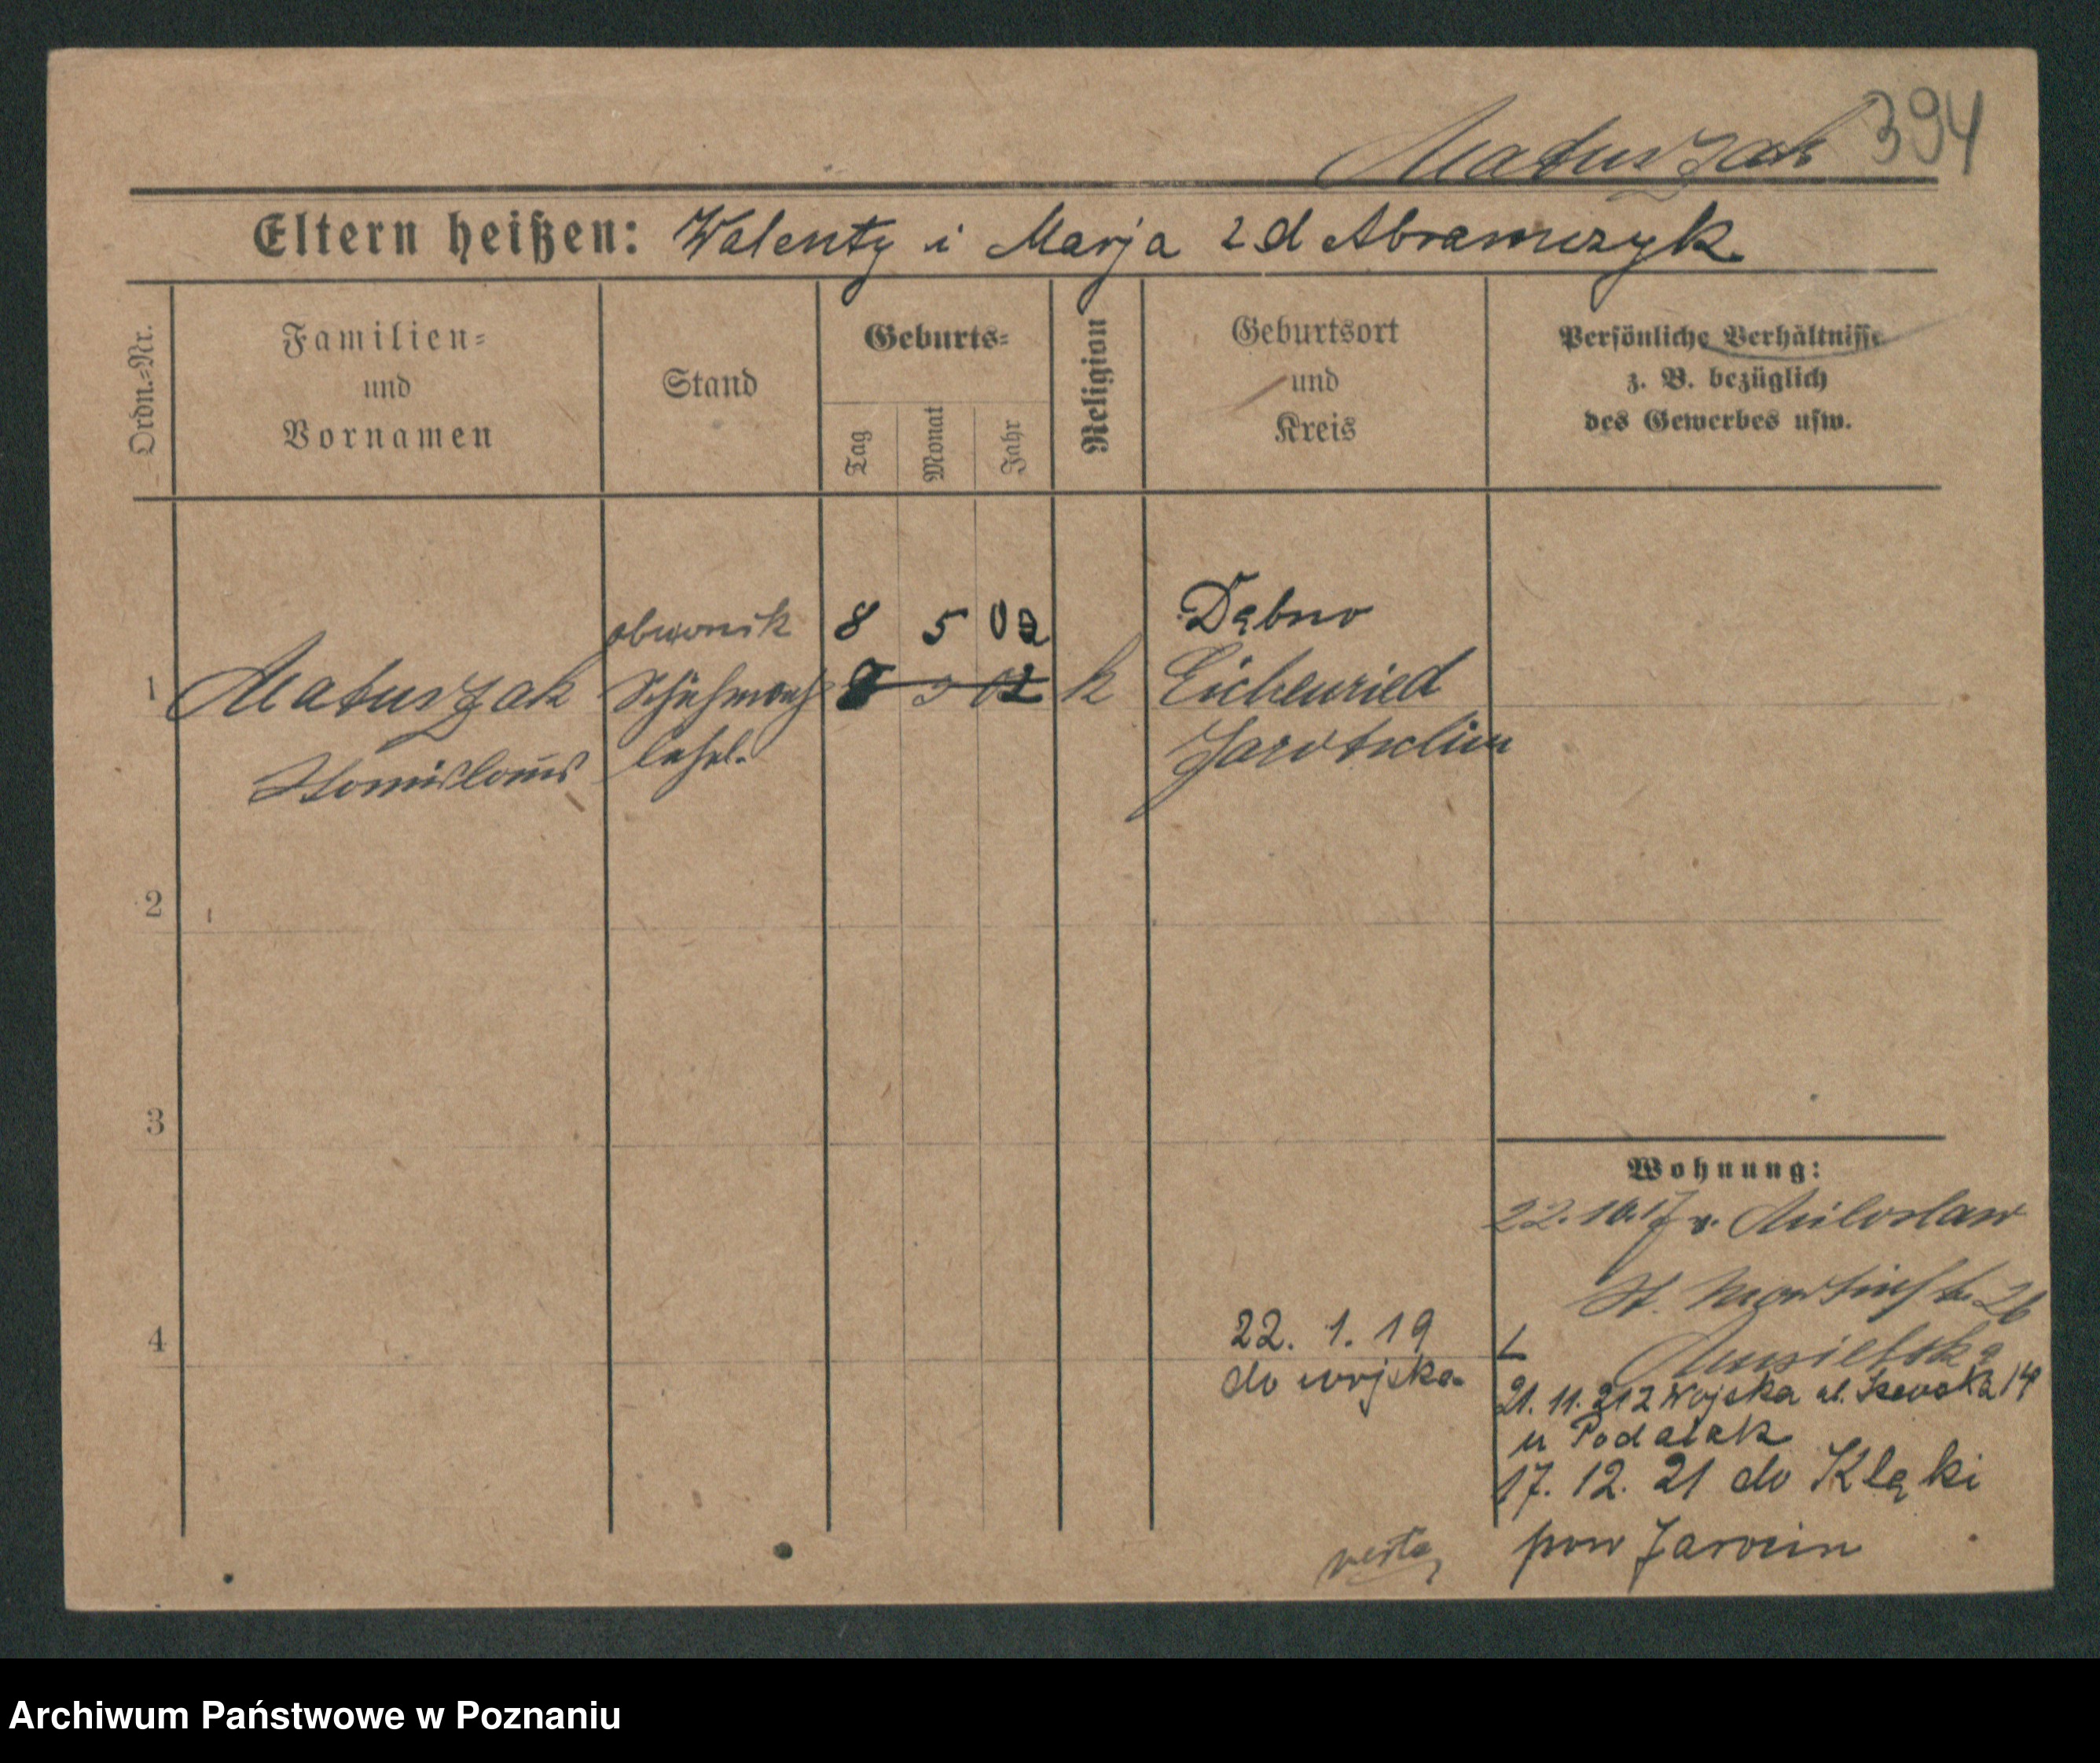 Matuszak 394
Eltern heißen: Walenty i Marja z d Abramczyk
Ordn.=Nr.
Familien=
und
Vornamen
Stand
Geburts=
Tag
Monat
Jahr
Religion
Geburtsort
und
Kreis
Persönliche Verhältnisse
z. B. bezüglich
des Gewerbes usw.
obuwnik 8 5 02 Dąbno
1 Matuszak Schuhmach 8 5 02 k Eichenried
Stanislaus lehrl. Jarotschin
2
3
4
Wohnung:
22.10.17 v. Miloslaw
St. Martinstr. 26
Musielska
22. 1. 19
do wojska
21. 11. 21 z Wojska ul. 14
u Podalak
17. 12. 21 do Klęki
pow Jarocin